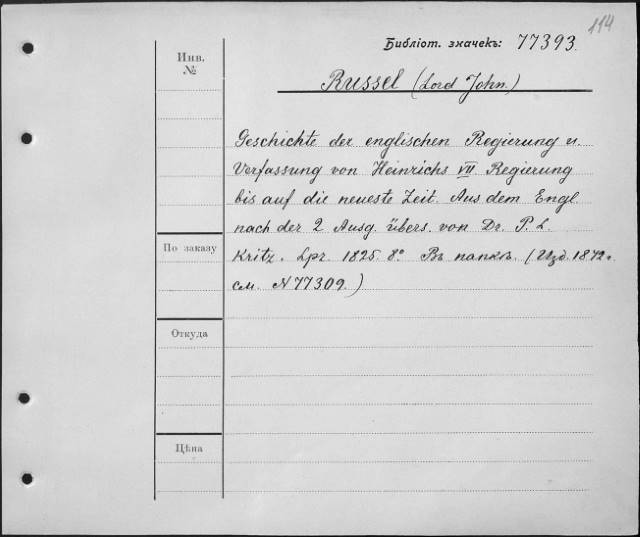 114
Библіот. значекъ: 77393.
Инв.
№
Russel (Lord John.)
Geschichte der englischen Regierung u.
Verfassung von Heinrichs VII. Regierung
bis auf die neueste Zeit. Aus dem Engl.
nach der 2 Ausg. übers. von Dr. P. L.
Kritz. Lpz. 1825. 8º. Въ папкѣ. (Изд. 1872 г.
см. N 77309.)
По заказу
Откуда
Цѣна